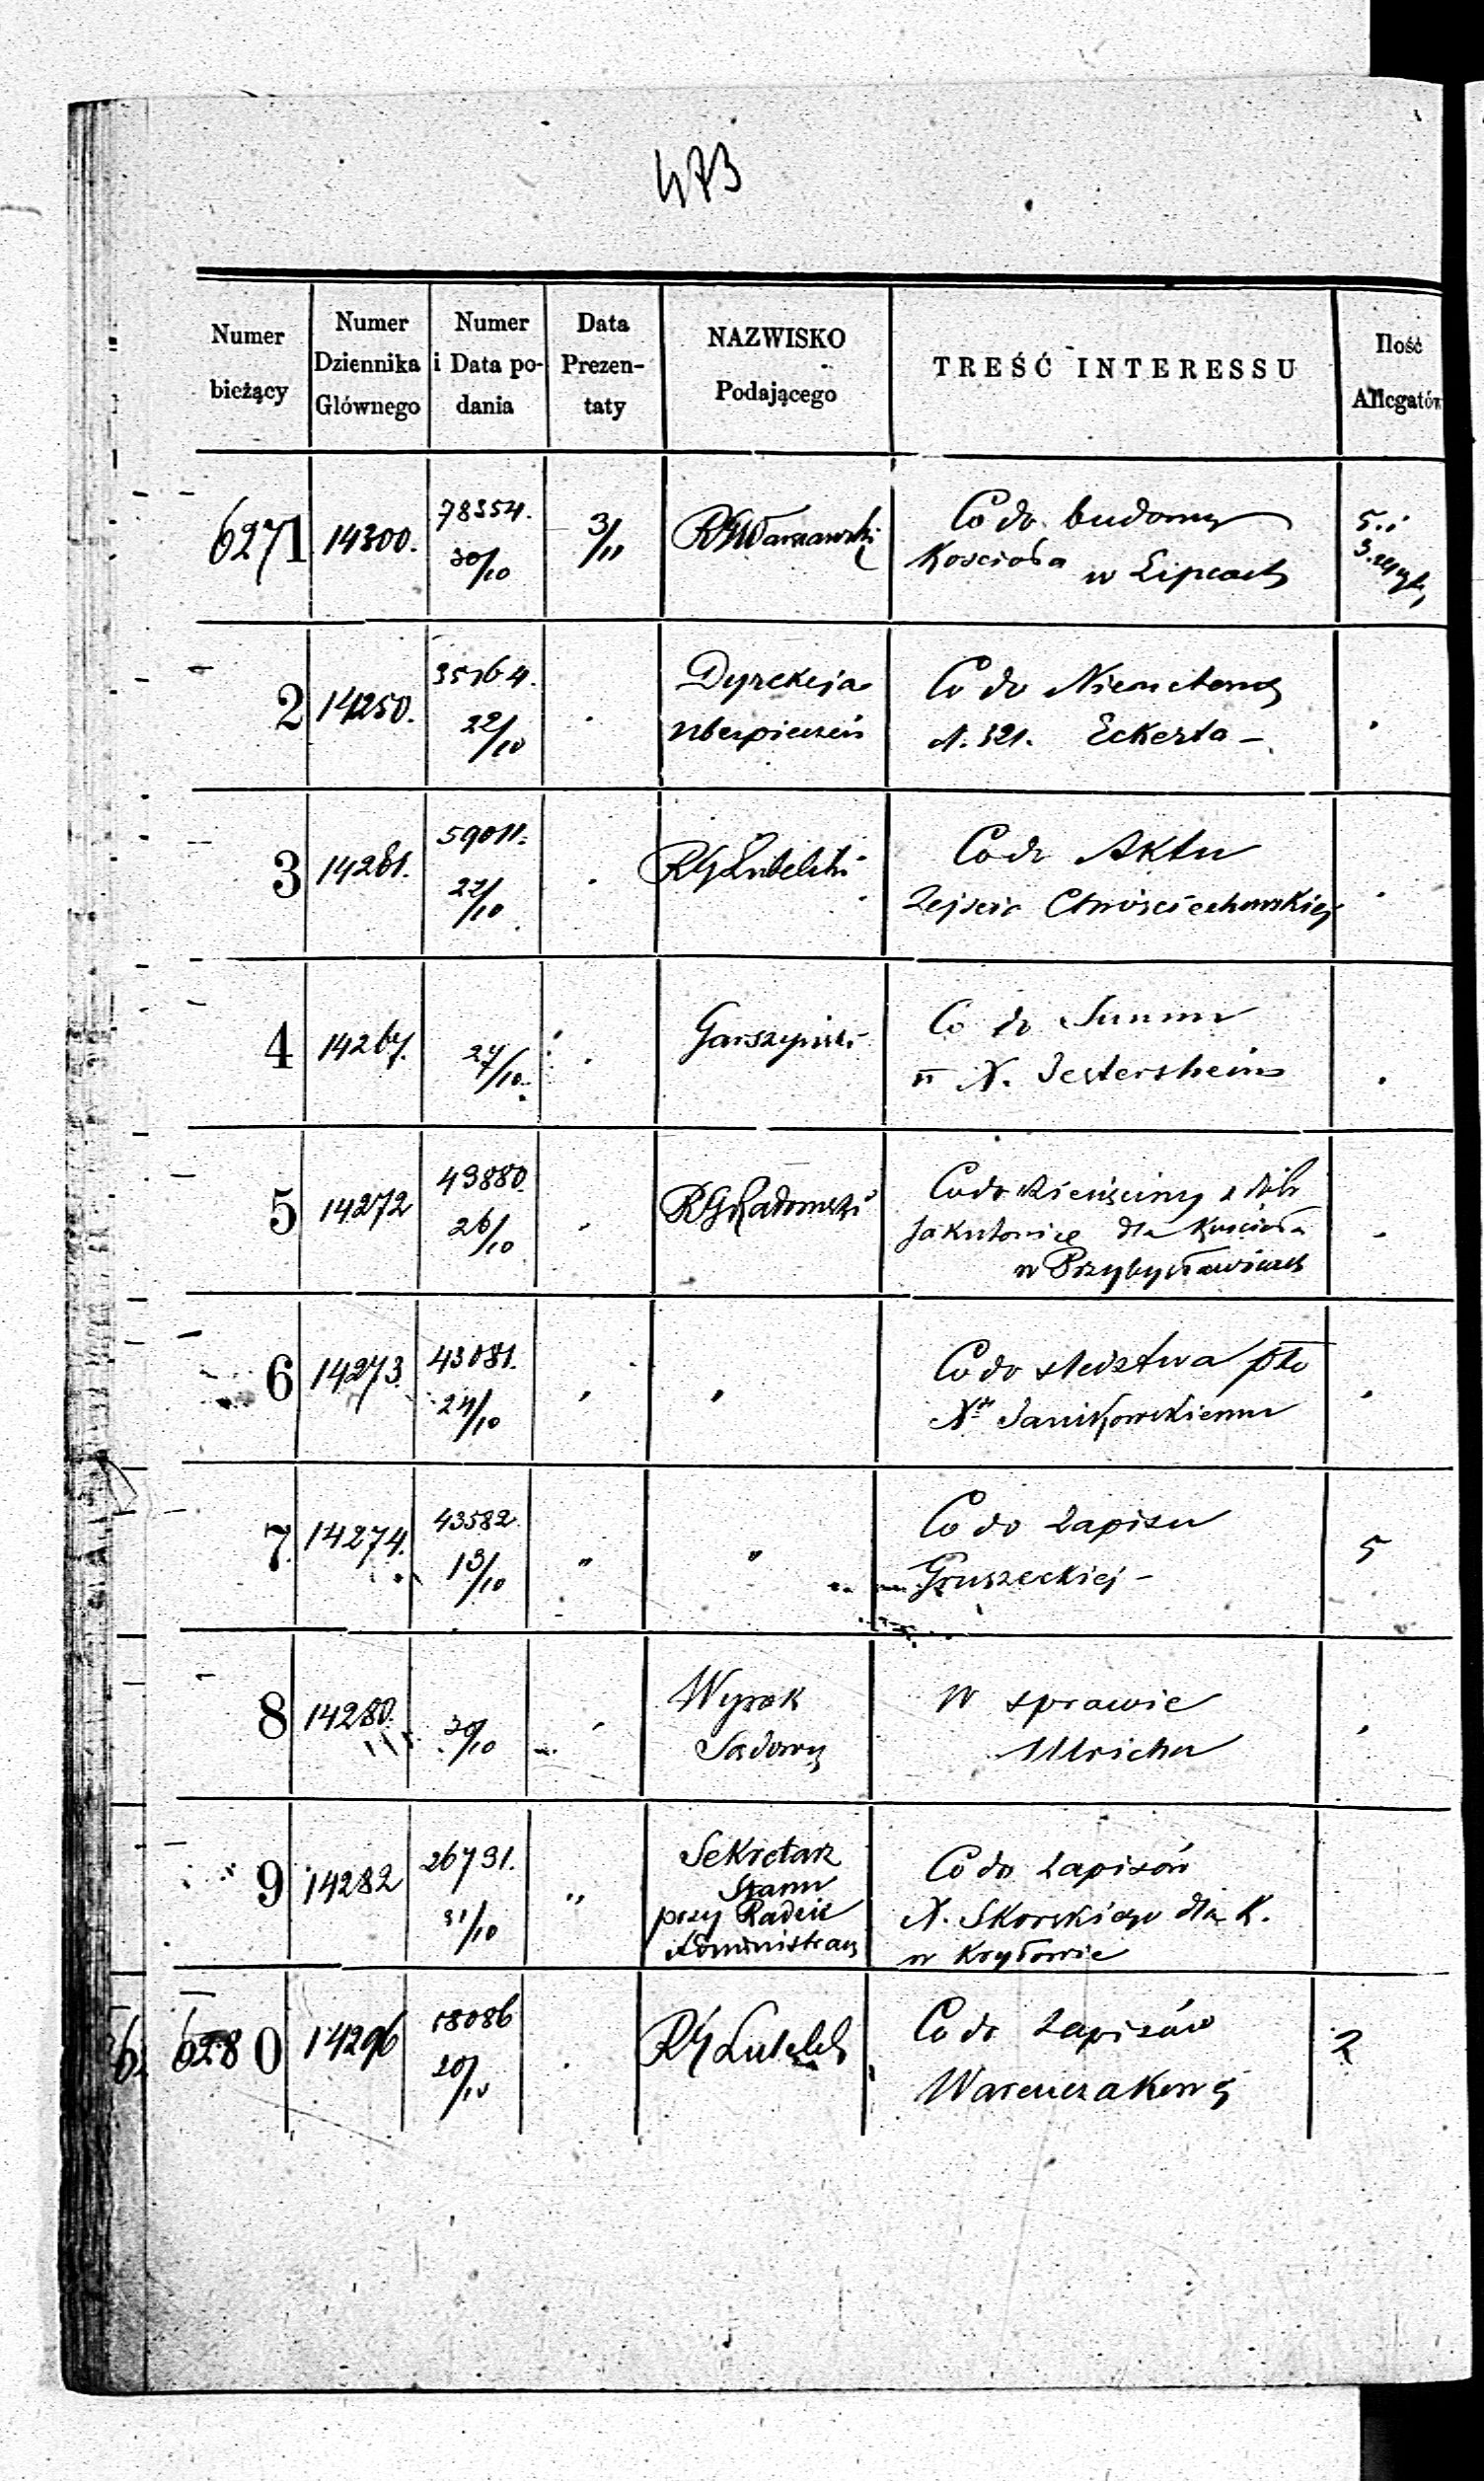 473
Numer bieżący | Numer Dziennika Głównego | Numer i Data podania | Data Prezentaty | NAZWISKO Podającego | TREŚĆ INTERESSU | Ilość Allegatów
6271 14300. 78354. 30/10 3/11 RGWarszawski Co do budowy
Kościoła w Lipcach 5. i
2 14250. 22/10 Dyrekcja Co do
Ubezpieczeń N. 321. Eckerta –
3 14261. 59011. 22/10 RGLubelski Co do Aktu
Zejścia Chruściechowskiej
4 27/10 Garszyński Co do Summ
X.
5 14272 43880. 26/10 RGRadomski Co do dziesięciny z dóbr
dla Kościoła
w Przybysławicach
6 14273. 43081. 24/10 Co do śledztwa pko
Xu Janikowskiemu
7. 14274. 43582. 13/10 " " Co do zapisu 5
Gruszeckiej –
8 14280. 30/10 Wyrok W sprawie
Sądowy Ulricha
9 14282 26791. 31/10 " Sekretarz
Stanu
przy Radzie
Administracy
Co do zapisów
X. Skorskiego dla K.
w Kryłowie
6280 14296 18086 20/10 RGLubelsk Co do zapisów 2